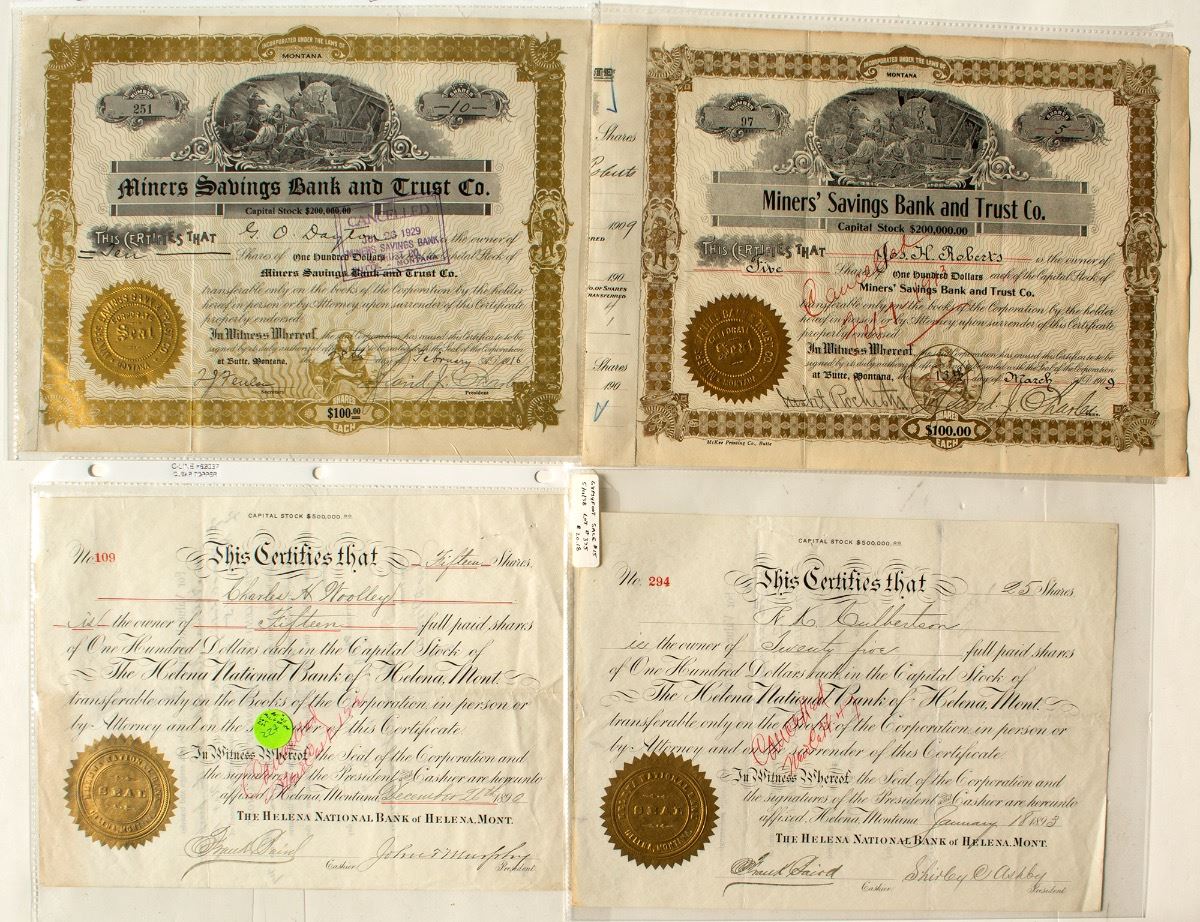 INCORPORATED UNDER THE LAWS OF
MONTANA
NUMBER
251
SHARES
-10-
Miners Savings Bank and Trust Co.
Capital Stock $200,000.00
This Certifies that G. O. Dayton is the owner of
Ten Shares of One Hundred Dollars each of the Capital Stock of
Miners Savings Bank and Trust Co.
transferable only on the books of the Corporation by the holder
hereof in person or by Attorney upon surrender of this Certificate
properly endorsed.
In Witness Whereof, the said Corporation has caused this Certificate to be
signed by its duly authorized
at Butte, Montana. February
Secretary President
SHARES
$100.00
EACH
CANCELLED
JUL 26 1929
MINERS SAVINGS BANK
MONTANA
Seal
MONTANA
Shares
Roberts
1909
190
NO. OF SHARES
TRANSFERRED
Shares
190
INCORPORATED UNDER THE LAWS OF
MONTANA
NUMBER
97
5
Miners' Savings Bank and Trust Co.
Capital Stock $200,000.00
This Certifies that Jos. H. Roberts is the owner of
Five Shares One Hundred Dollars each of the Capital Stock of
Miners' Savings Bank and Trust Co.
transferable only on the books of the Corporation by the holder
hereof in person or by Attorney upon surrender of this Certificate
properly endorsed.
In Witness Whereof, the said Corporation has caused this Certificate to be
signed by its duly
at Butte, Montana, March 1909
SHARES
$100.00
EACH
McKee Printing Co., Butte
Cancelled
C-LINE #62037
CAPITAL STOCK $500,000.00.
No. 109 This Certifies that Fifteen Shares
Charles A Woolley
is the owner of Fifteen full paid shares
of One Hundred Dollars each in the Capital Stock of
The Helena National Bank of Helena, Mont.
transferable only on the Books of the Corporation in person or
by Attorney and on the surrender of this Certificate.
In Witness Whereof the Seal of the Corporation and
the signatures of the President and Cashier are hereunto
affixed Helena, Montana December 20th 1890
THE HELENA NATIONAL BANK OF HELENA, MONT.
Frank Baird Cashier John T Murphy President
Cancelled
SEAL
SALE #15
LOT # 335
CAPITAL STOCK $500,000.00.
No. 294 This Certifies that 25 Shares
Culbertson
is the owner of Twenty five full paid shares
of One Hundred Dollars each in the Capital Stock of
The Helena National Bank of Helena, Mont.
transferable only on the Books of the Corporation in person or
by Attorney and on the surrender of this Certificate.
In Witness Whereof the Seal of the Corporation and
the signatures of the President and Cashier are hereunto
affixed Helena, Montana January 18 1893
THE HELENA NATIONAL BANK OF HELENA, MONT.
Frank Baird Cashier Shirley C Ashby President
Cancelled
SEAL